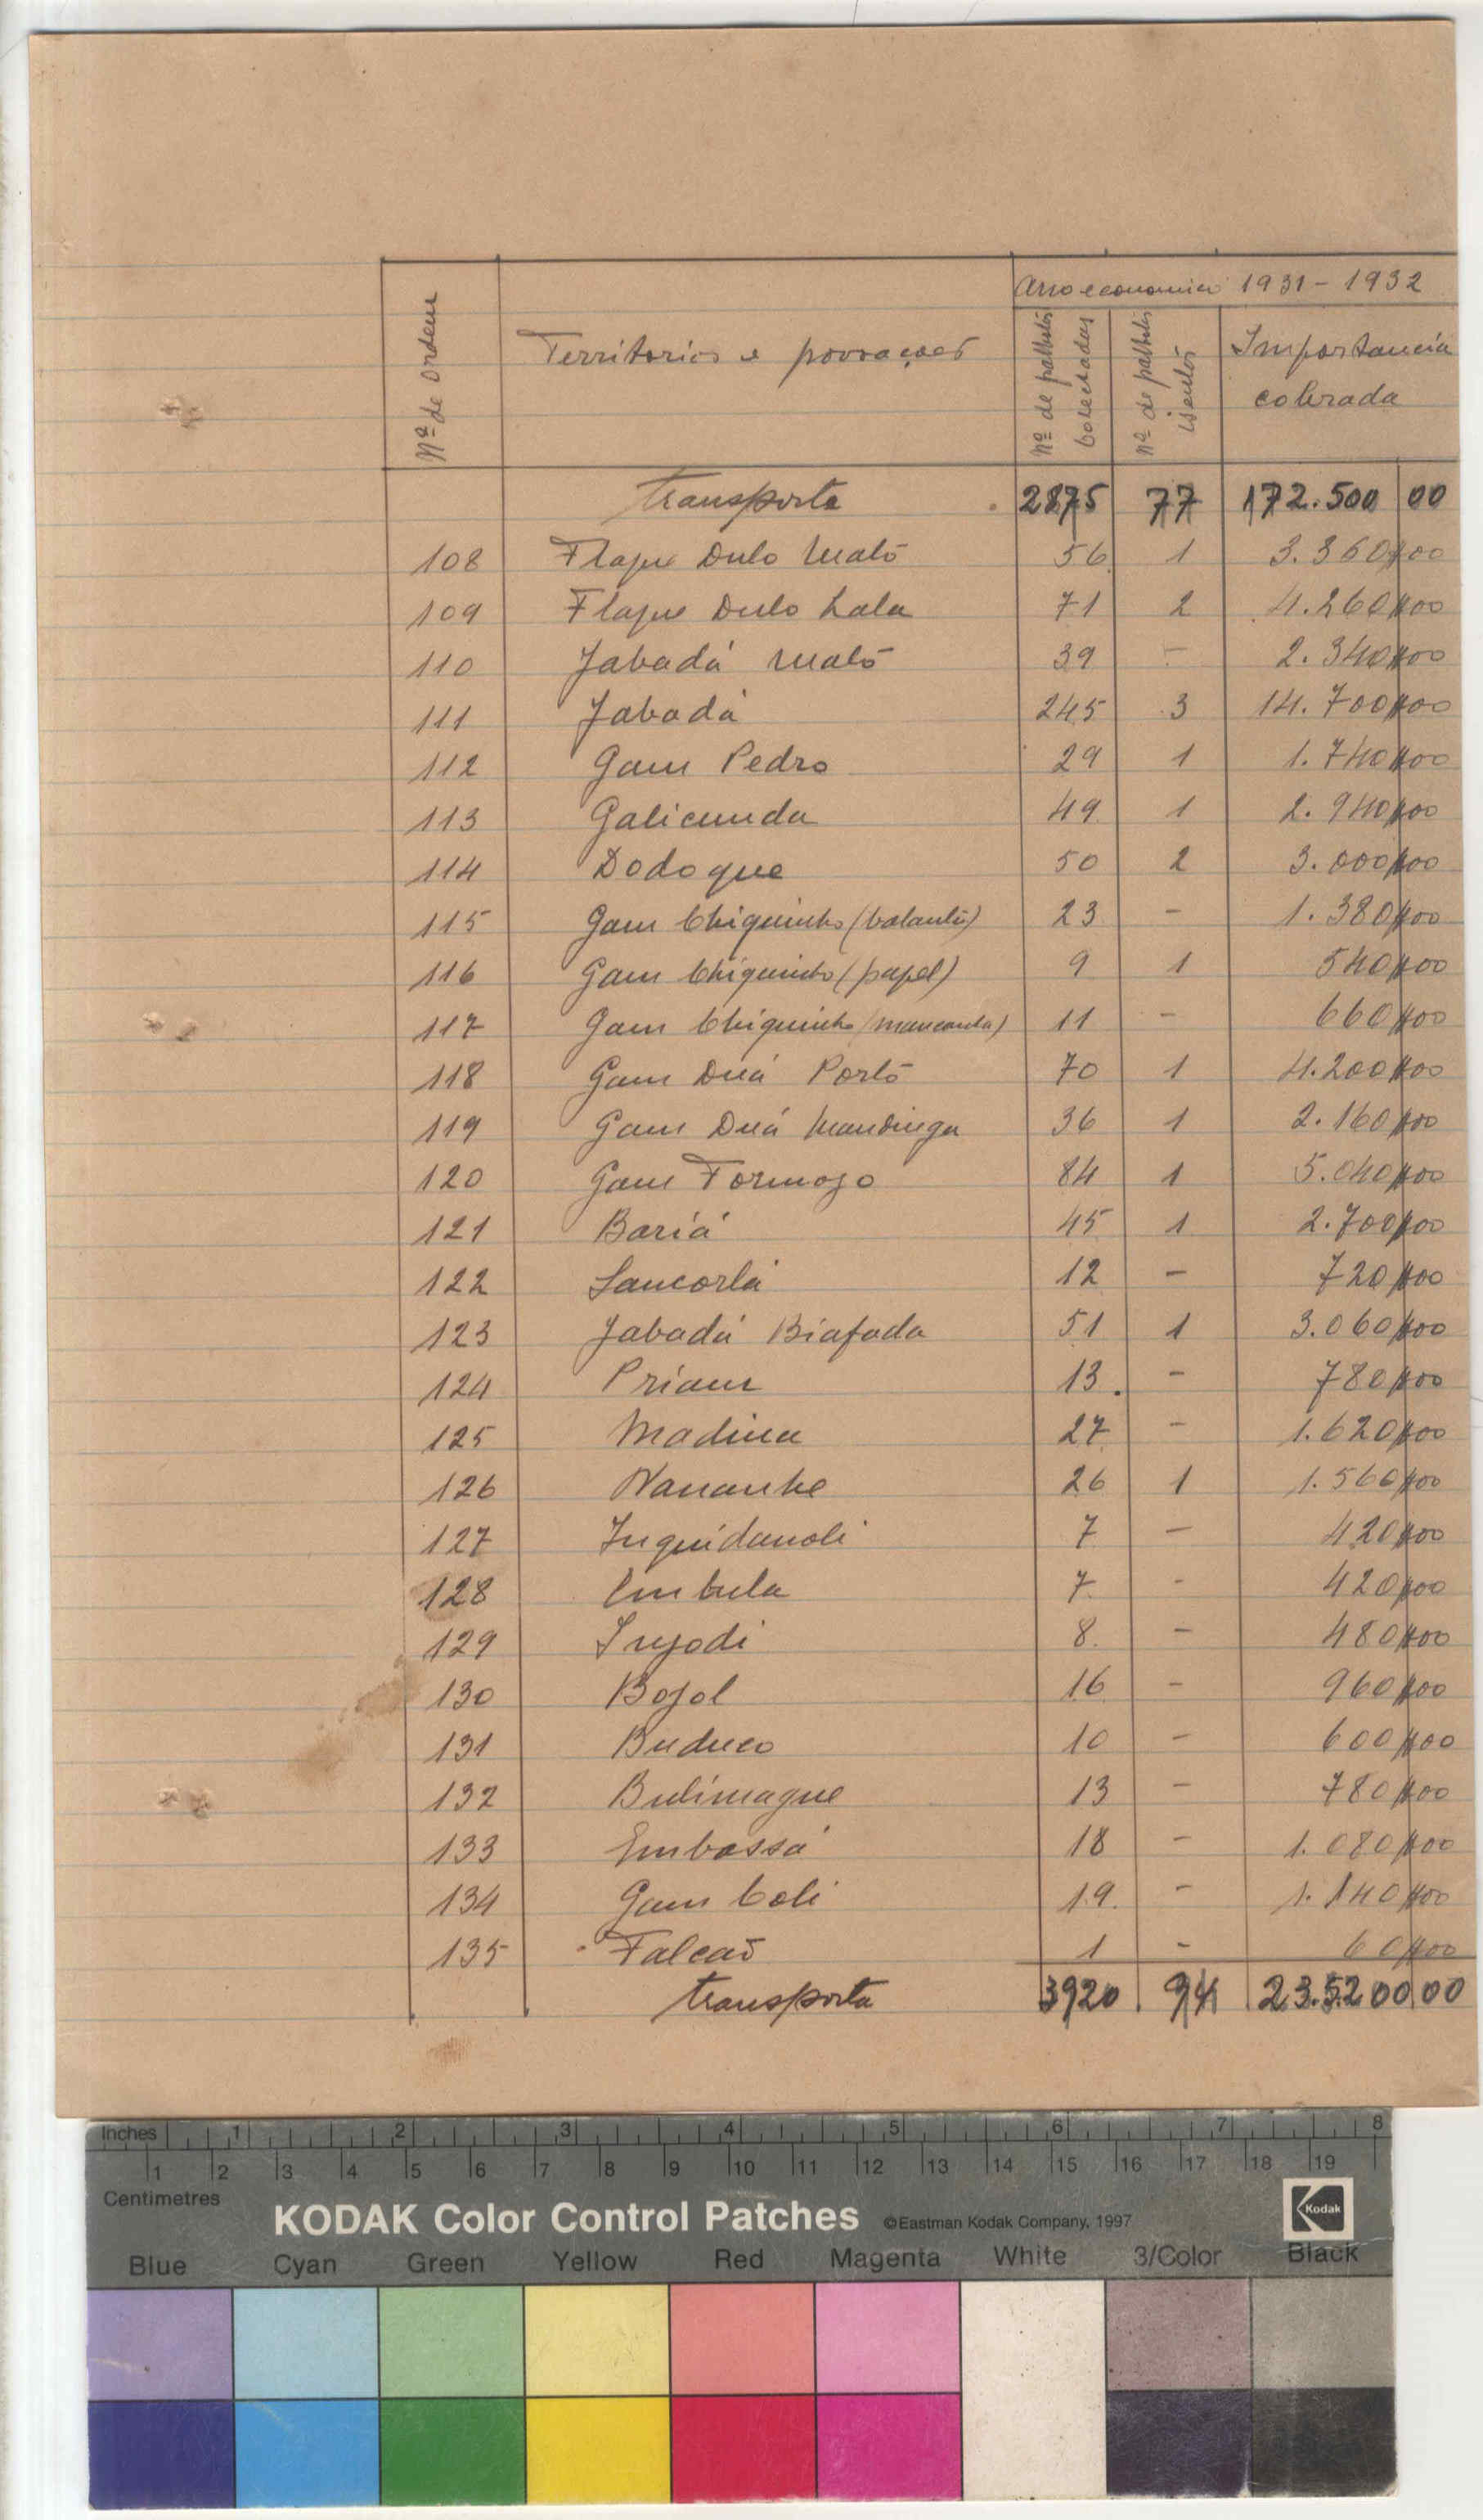 Ano economico 1931-1932
Nº de ordem
Territorios e povoações
Nº de palhotas colectadas
Nº de palhotas isentas
Importancia cobrada
Transporte 2875 77 172.500 00
108 Flaque Dulo Mató 56 1 3.360$00
109 Flaque Dulo Lala 71 2 4.260$00
110 Jabadá Mató 39 - 2.340$00
111 Jabadá 245 3 14.700$00
112 Gam Pedro 29 1 1.740$00
113 Galicunda 49 1 2.940$00
114 Dodoque 50 2 3.000$00
115 Gam Chiquinho (balanta) 23 - 1.380$00
116 Gam Chiquinho (papel) 9 1 540$00
117 Gam Chiquinho (mancanha) 11 - 660$00
118 Gam Duá Portó 70 1 4.200$00
119 Gam Duá Mandinga 36 1 2.160$00
120 Gam Formozo 84 1 5.040$00
121 Bariá 45 1 2.700$00
122 Sancorlá 12 - 720$00
123 Jabadá Biafada 51 1 3.060$00
124 Priam 13 - 780$00
125 Madina 27 - 1.620$00
126 Nananhe 26 1 1.560$00
127 Inquidanoli 7 - 420$00
128 Embula 7 - 420$00
129 8 - 480$00
130 Bojol 16 - 960$00
131 Buduco 10 - 600$00
132 Bulimaque 13 - 780$00
133 Embassá 18 - 1.080$00
134 Gam Coli 19 - 1.140$00
135 Falcão 1 - 60$00
Transporta 3920 94 23.5.200 00
Inches 1 2 3 4 5 6 7 8
1 2 3 4 5 6 7 8 9 10 11 12 13 14 15 16 17 18 19
Centimetres
KODAK Color Control Patches ©Eastman Kodak Company, 1997 Kodak
Blue Cyan Green Yellow Red Magenta White 3/Color Black